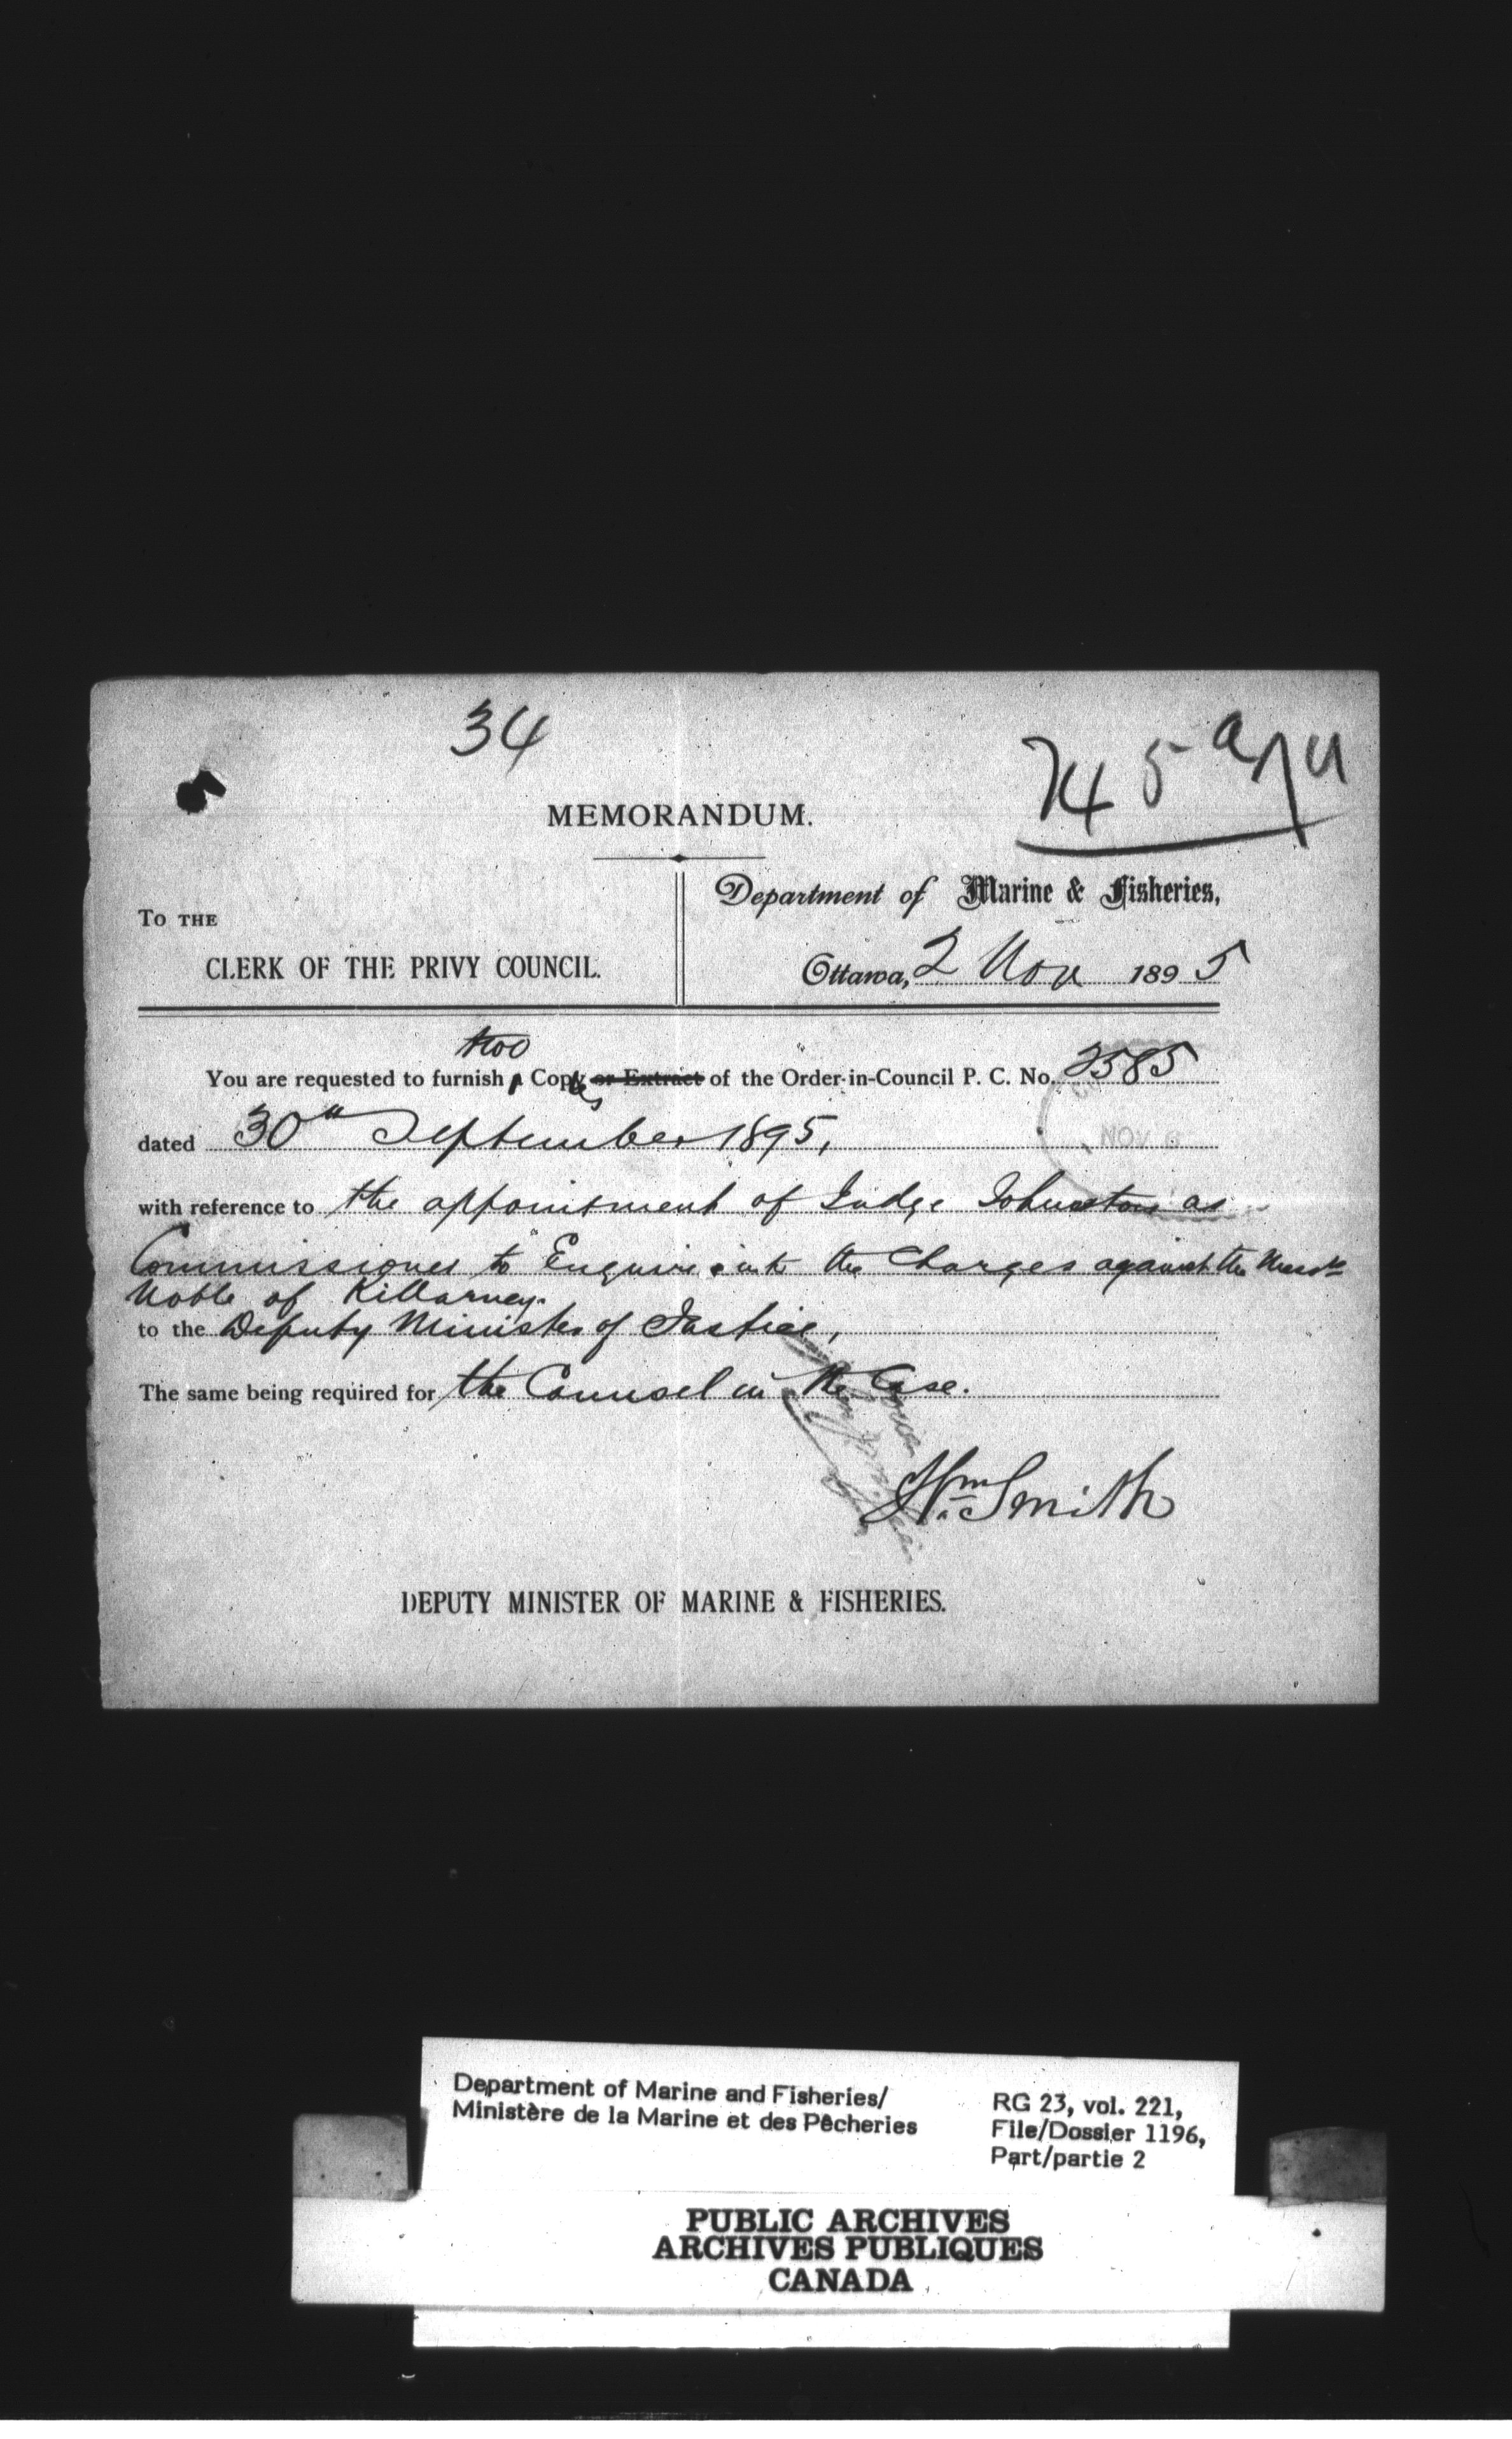 34
MEMORANDUM.
Department of Marine & Fisheries,
To THE
CLERK OF THE PRIVY COUNCIL.
Ottawa, 2 Nov 1895
two
You are requested to furnish Copies or Extract of the Order-in-Council P. C. No. 2585
dated 30th September 1895,
NOV
with reference to the appointment of Judge Johnston as
Commissioner to Enquire into the Charges against the Messrs
Noble of Killarney.
to the Deputy Minister of Justice,
The same being required for the Counsel in the Case.
Wm Smith
DEPUTY MINISTER OF MARINE & FISHERIES.
Department of Marine and Fisheries/
Ministère de la Marine et des Pêcheries
RG 23, vol. 221,
File/Dossier 1196,
Part/partie 2
PUBLIC ARCHIVES
ARCHIVES PUBLIQUES
CANADA